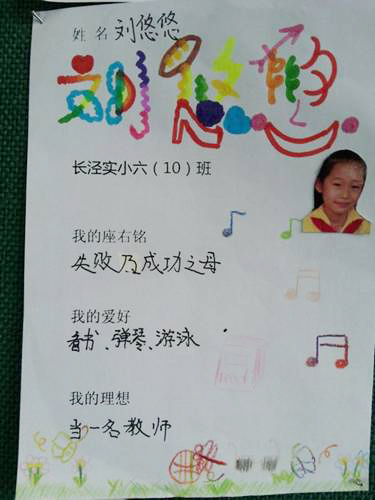 姓 名 刘悠悠
刘悠悠
长泾实小六（10）班
我的座右铭
失败乃成功之母
我的爱好
看书、弹琴、游泳
我的理想
当一名教师